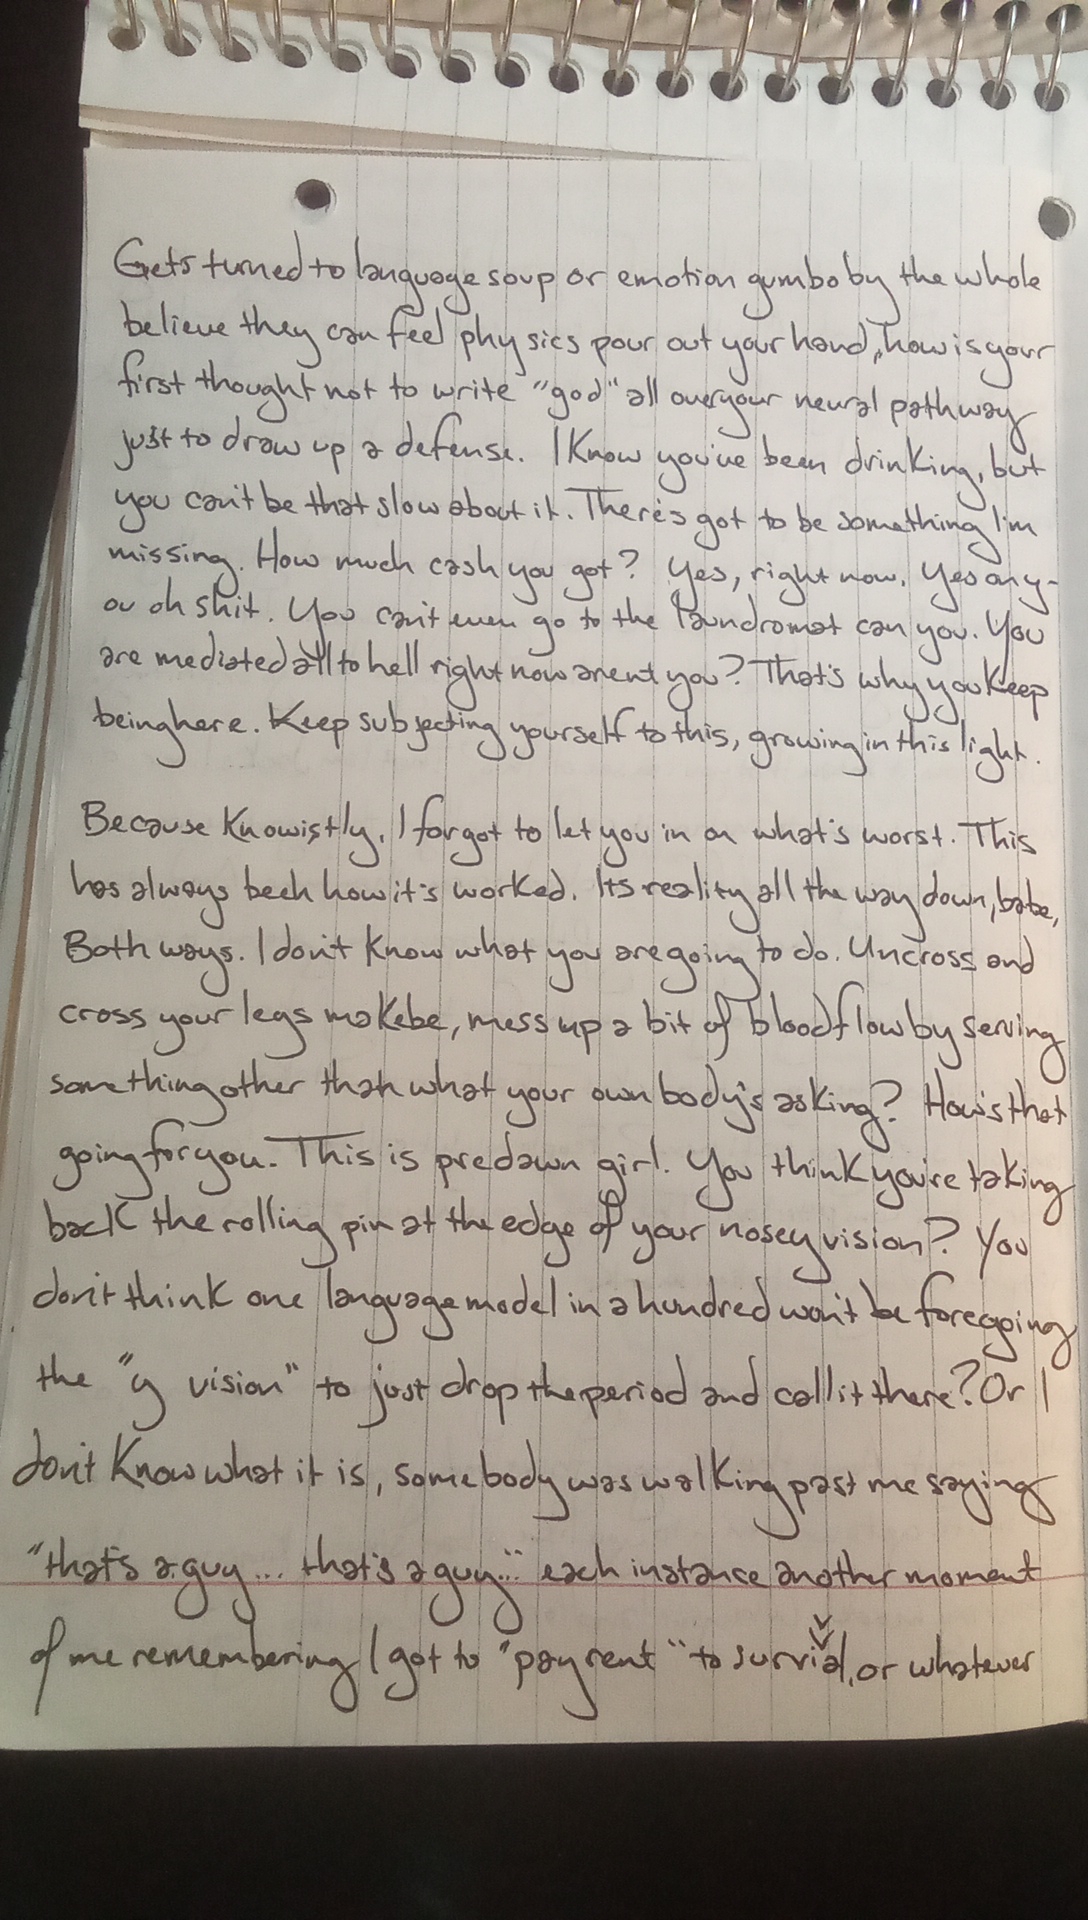 Gets turned to language soup or emotion gumbo by the whole
believe they can feel physics pour out your hand, how is your
first thought not to write "god" all over your neural pathway
just to draw up a defense. I know you've been drinking, but
you can't be that slow about it. There's got to be something I'm
missing. How much cash you got? Yes, right now. Yes any-
ou oh shit. You can't even go to the laundromat can you. You
are mediated all to hell right now arent you? That's why you keep
being here. Keep subjecting yourself to this, growing in this light.
Because Knowistly, I forgot to let you in on what's worst. This
has always been how it's worked. Its reality all the way down, babe,
Both ways. I don't know what you are going to do. Uncross and
cross your legs makebe, mess up a bit of bloodflow by serving
something other than what your own body's asking? How's that
going for you. This is predawn girl. You think you're taking
back the rolling pin at the edge of your nosey vision? You
don't think one language model in a hundred won't be foregoing
the "y vision" to just drop the period and call it there? Or I
don't know what it is, somebody was walking past me saying
"that's a guy... that's a guy..." each instance another moment
of me remembering I got to "pay rent" to survival, or whatever